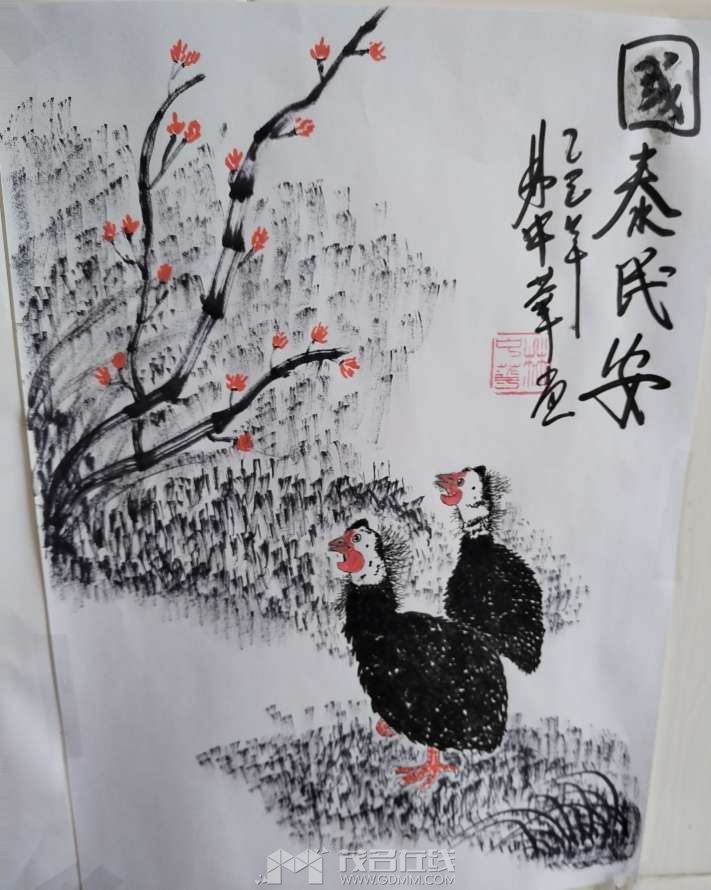 國泰民安
乙巳年
中華画
茂名在线
WWW.GDMM.COM